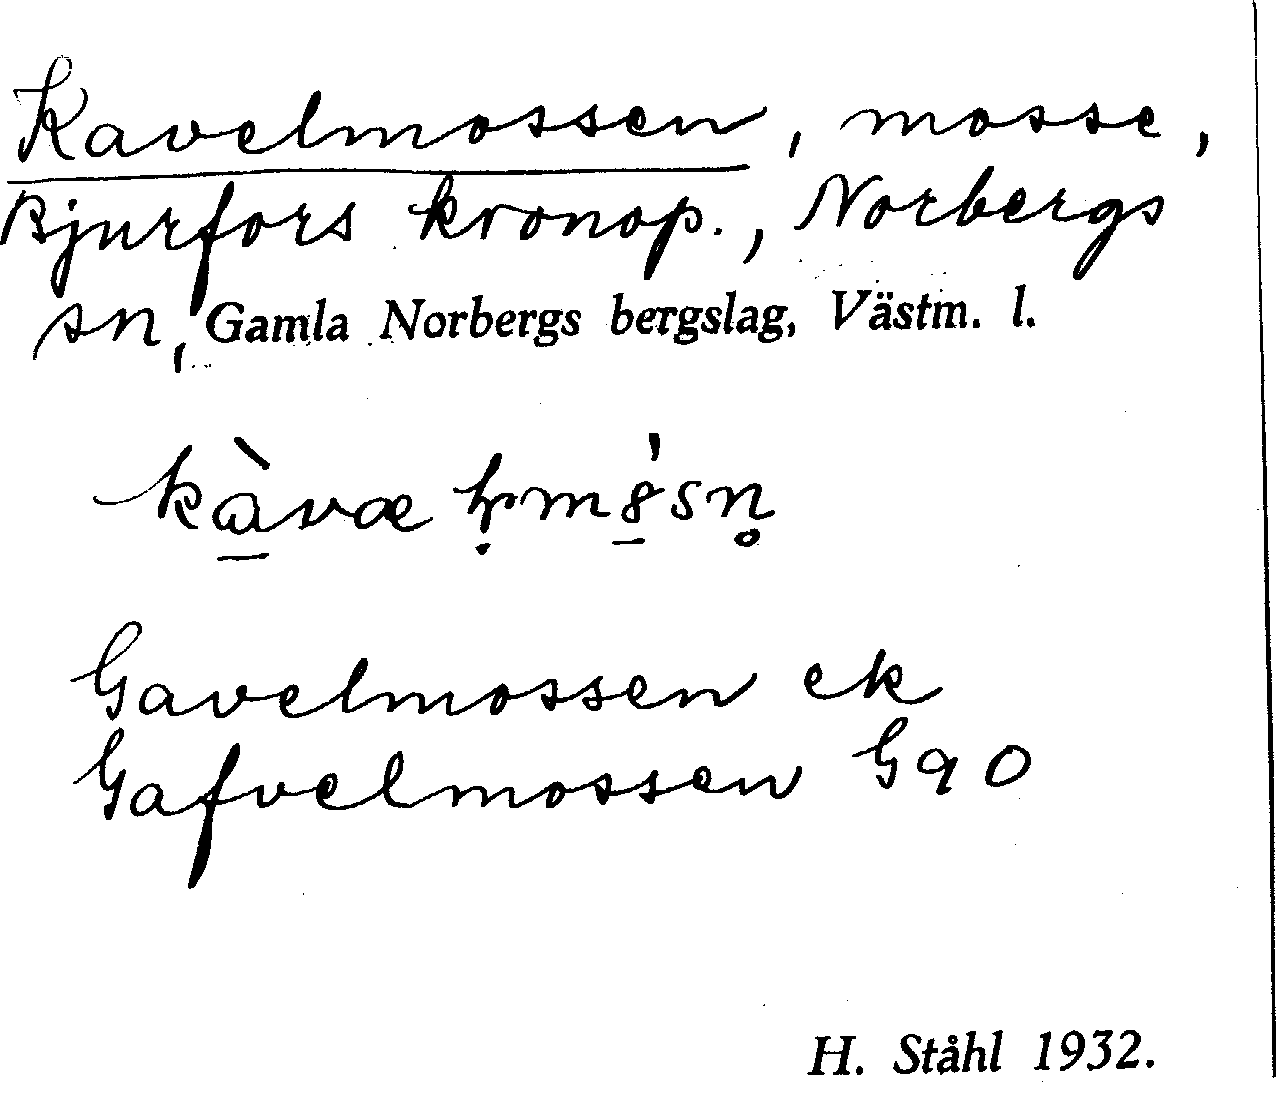 Kavelmossen, mosse,
Bjurfors kronop., Norbergs
sn, Gamla Norbergs bergslag, Västm. l.
Gavelmossen ek
Gafvelmossen G90
H. Ståhl 1932.